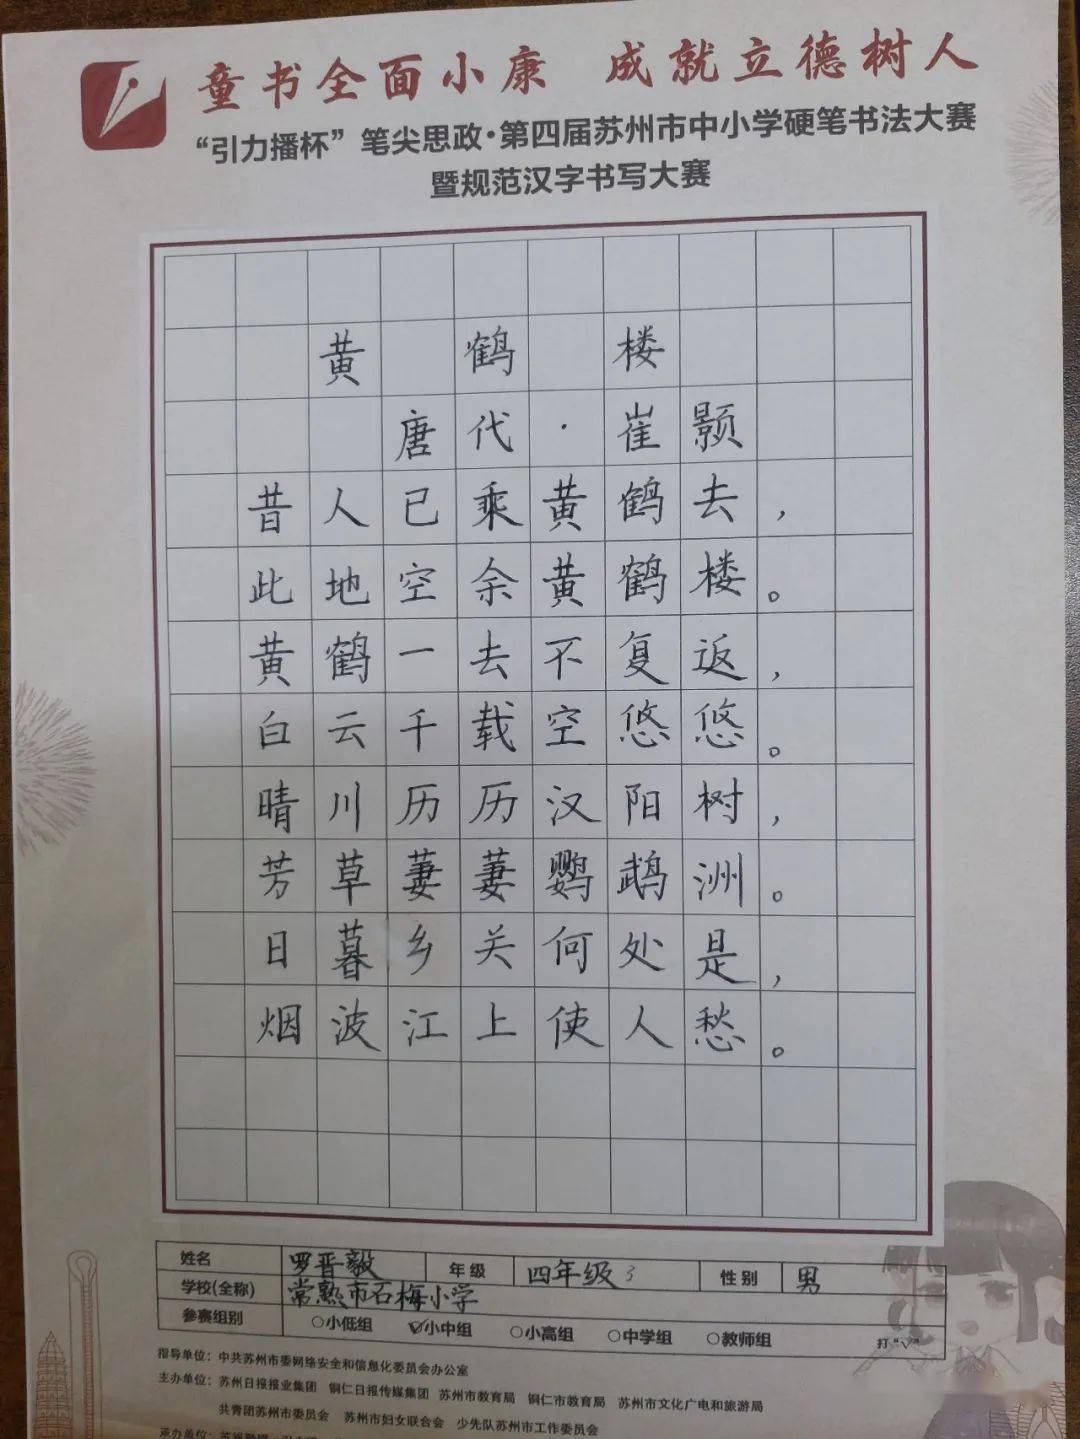 童书全面小康 成就立德树人
“引力播杯”笔尖思政·第四届苏州市中小学硬笔书法大赛
暨规范汉字书写大赛
黄鹤楼
唐代·崔颢
昔人已乘黄鹤去，
此地空余黄鹤楼。
黄鹤一去不复返，
白云千载空悠悠。
晴川历历汉阳树，
芳草萋萋鹦鹉洲。
日暮乡关何处是，
烟波江上使人愁。
姓名 罗晋毅 年级 四年级3 性别 男
学校(全称) 常熟市石梅小学
参赛组别 ○小低组 ☑小中组 ○小高组 ○中学组 ○教师组 打“√”
指导单位：中共苏州市委网络安全和信息化委员会办公室
主办单位：苏州日报报业集团 铜仁日报传媒集团 苏州市教育局 铜仁市教育局 苏州市文化广电和旅游局
共青团苏州市委员会 苏州市妇女联合会 少先队苏州市工作委员会
承办单位：